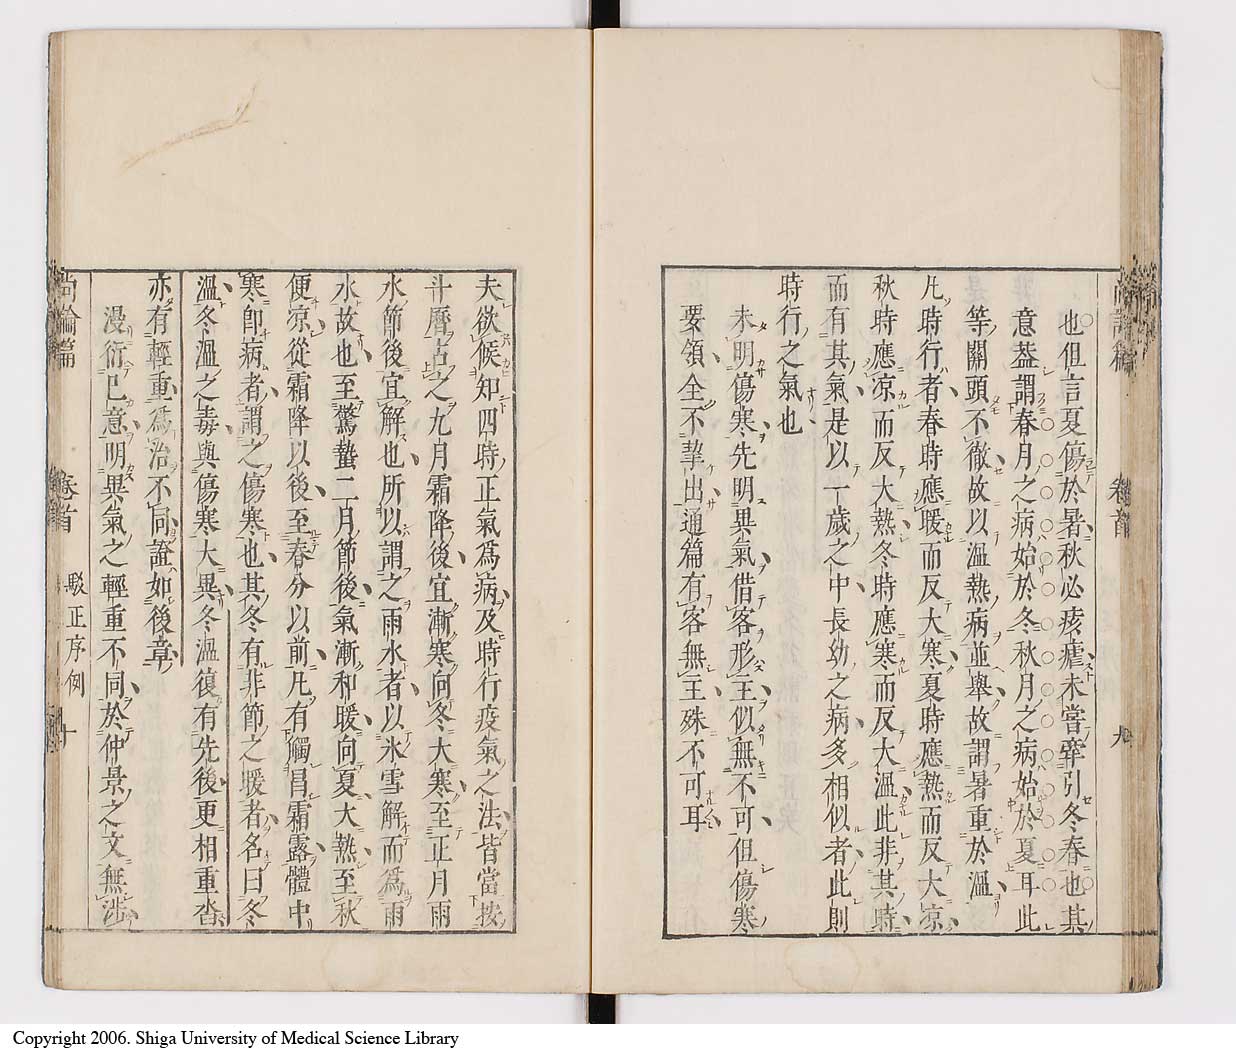 也但言夏傷於暑秋必痎瘧未嘗牽引冬春也其
意葢謂春月之病始於冬秋月之病始於夏耳此
等關頭不徹故以溫熱病並舉故謂暑重於溫
凡時行者春時應暖而反大寒夏時應熱而反大凉
秋時應凉而反大熱冬時應寒而反大溫此非其時
而有其氣是以一歲之中長幼之病多相似者此則
時行之氣也
未明傷寒先明異氣借客形主似無不可但傷寒
要領全不挈出通篇有客無主殊不可耳
卷首
九
夫欲候知四時正氣爲病及時行疫氣之法皆當按
斗曆占之九月霜降後宜漸寒向冬大寒至正月雨
水節後宜解也所以謂之雨水者以氷雪解而爲雨
水故也至驚蟄二月節後氣漸和暖向夏大熱至秋
便凉從霜降以後至春分以前凡有觸冒霜露體中
寒卽病者謂之傷寒也其冬有非節之暖者名曰冬
溫冬溫之毒與傷寒大異冬溫復有先後更相重沓
亦有輕重爲治不同證如後章
漫衍已意明異氣之輕重不同於仲景之文無涉
尚論篇
卷首
駁正序例
十
Copyright 2006. Shiga University of Medical Science Library